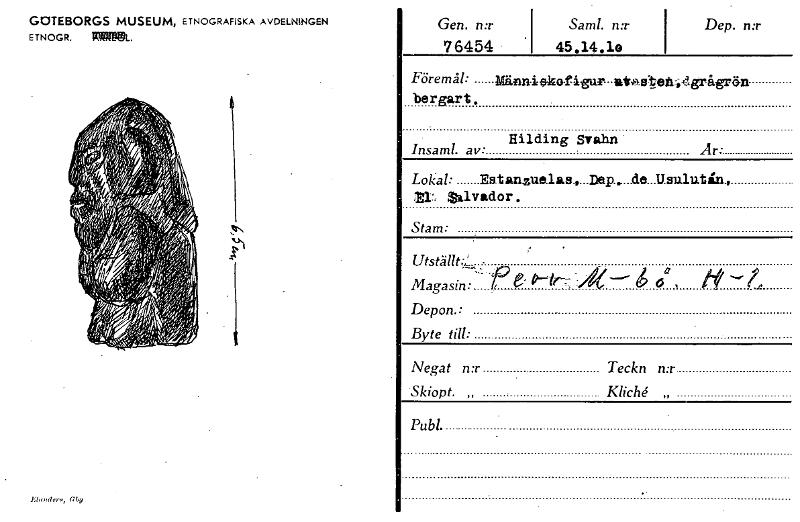 GÖTEBORGS MUSEUM, ETNOGRAFISKA AVDELNINGEN
ETNOGR.
6,5 cm
Elanders, Gbg
Gen. n:r Saml. n:r Dep. n:r
76454 45.14.10
Föremål: Människofigur av sten, grågrön
bergart.
Insaml. av: Hilding Svahn År:
Lokal: Estanzuelas, Dep. de Usulután,
El Salvador.
Stam:
Utställt:
Magasin:
Depon.:
Byte till:
Negat n:r Teckn n:r
Skiopt. „ Kliché „
Publ.